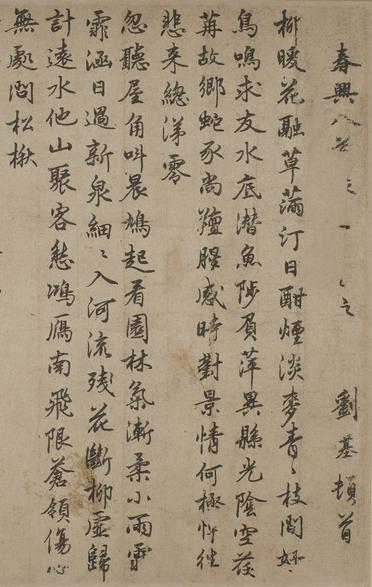 春興八首之一 劉基頓首
柳暖花融草滿汀日酣煙淡麥青〻枝間好
鳥鳴求友水底潛魚陟負萍異縣光陰空荏
苒故鄉蛇豕尚羶腥感時對景情何極往
悲來總涕零
忽聽屋角叫晨鳩起看園林氣漸柔小雨霏
霏涵日過新泉細〻入河流残花斷柳虛歸
計遠水他山聚客愁鴻鴈南飛限蒼領傷心
無處問松楸